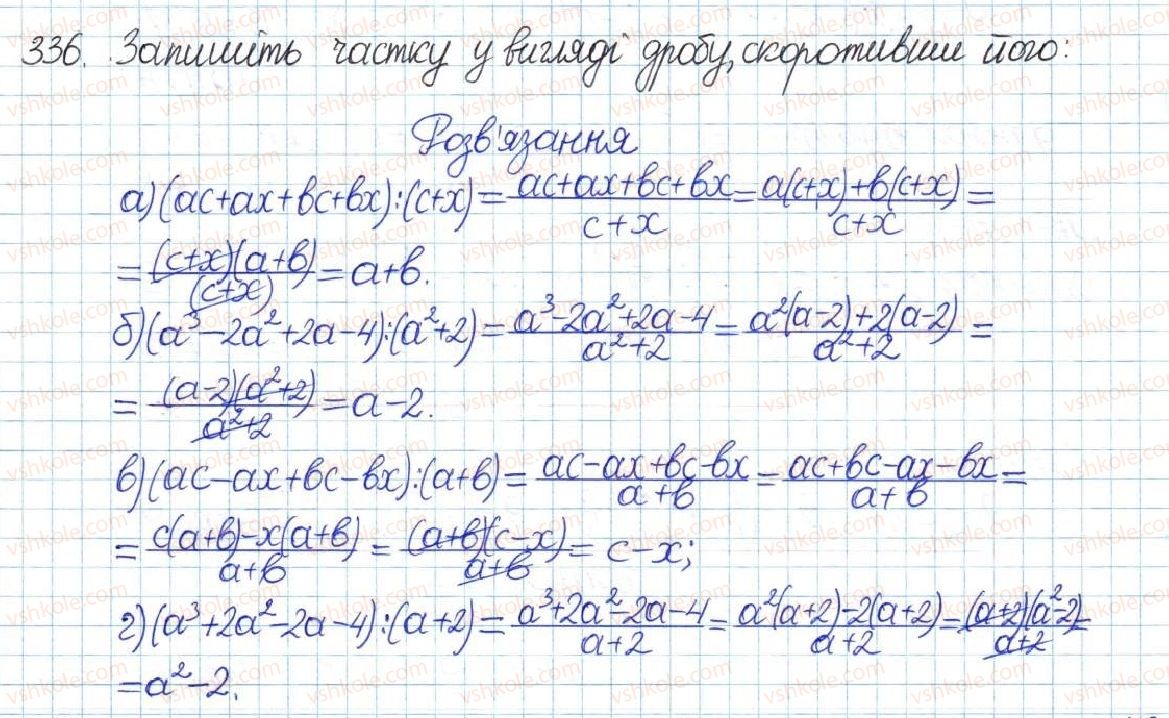 336. Запишіть частку у вигляді дробу, скоротивши його:
Розв'язання
а) (ac+ax+bc+bx):(c+x) = (ac+ax+bc+bx)/(c+x) = (a(c+x)+b(c+x))/(c+x) =
= ((c+x)(a+b))/((c+x)) = a+b.
б) (a³-2a²+2a-4):(a²+2) = (a³-2a²+2a-4)/(a²+2) = (a²(a-2)+2(a-2))/(a²+2) =
= ((a-2)(a²+2))/(a²+2) = a-2.
в) (ac-ax+bc-bx):(a+b) = (ac-ax+bc-bx)/(a+b) = (ac+bc-ax-bx)/(a+b) =
= (c(a+b)-x(a+b))/(a+b) = ((a+b)(c-x))/(a+b) = c-x;
г) (a³+2a²-2a-4):(a+2) = (a³+2a²-2a-4)/(a+2) = (a²(a+2)-2(a+2))/(a+2) = ((a+2)(a²-2))/(a+2) =
= a²-2.